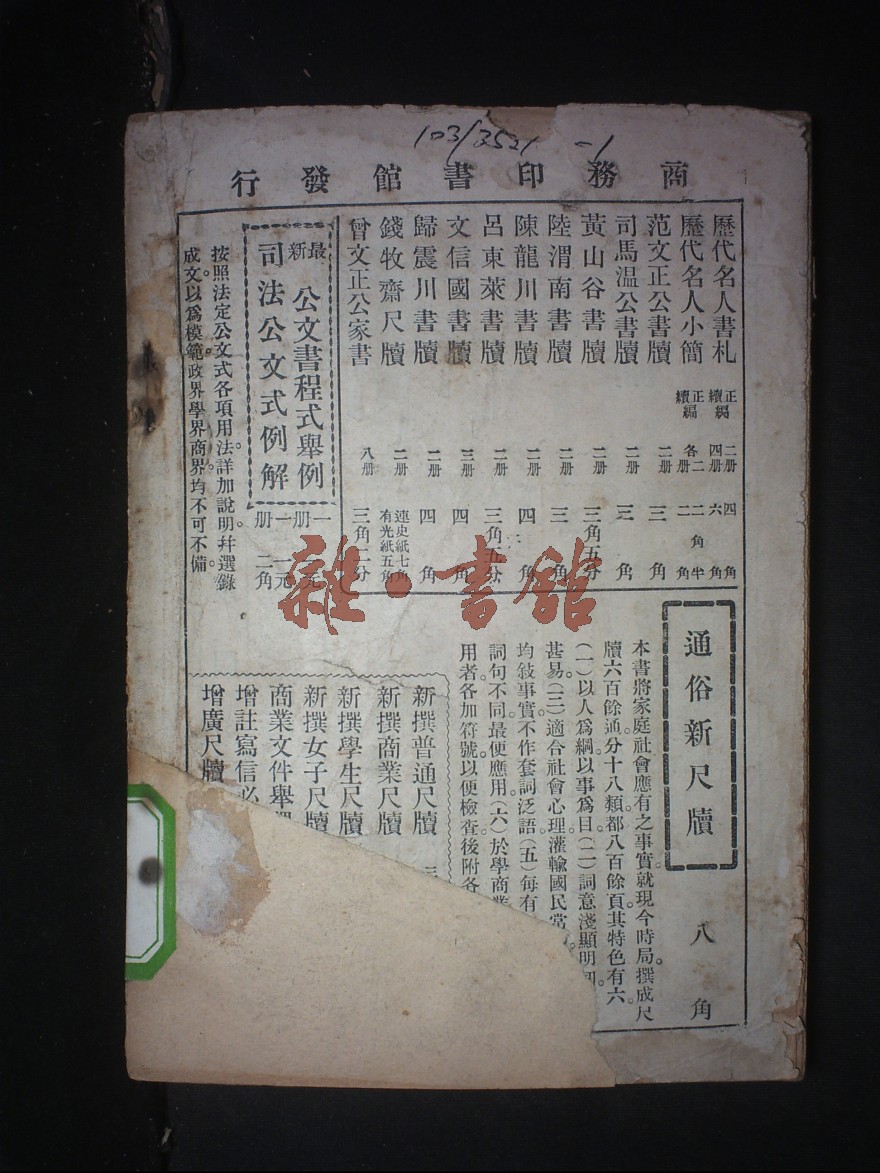 103/3521 -1
商務印書館發行
歷代名人書札 正編 二册 四角 續編 四册 六角
歷代名人小簡 正編 續編 各二册 二角半
范文正公書牘 二册 三角
司馬温公書牘 二册 三角
黃山谷書牘 二册 三角五分
陸渭南書牘 二册 三角
陳龍川書牘 二册 四角
呂東萊書牘 二册 三角五分
文信國書牘 三册 四角
歸震川書牘 二册 四角
錢牧齋尺牘 二册 連史紙七角 有光紙五角
曾文正公家書 八册 三角二分
最新 公文書程式舉例 一册 一元
司法公文式例解 一册 一元二角
按照法定公文式各項用法。詳加說明。幷選錄
成文。以爲模範。政界學界商界均不可不備。
通俗新尺牘 八角
本書將家庭社會應有之事實。就現今時局。撰成尺
牘六百餘通。分十八類。都八百餘頁。其特色有六
(一)以人爲綱。以事爲目。(二)詞意淺顯明
甚易。(三)適合社會心理。灌輸國民常
均敍事實。不作套詞泛語。(五)每有
詞句不同。最便應用。(六)於學商
用者。各加符號。以便檢查。後附各
新撰普通尺牘
新撰商業尺牘
新撰學生尺牘
新撰女子尺牘
商業文件舉
增註寫信必
增廣尺牘
雜·書館